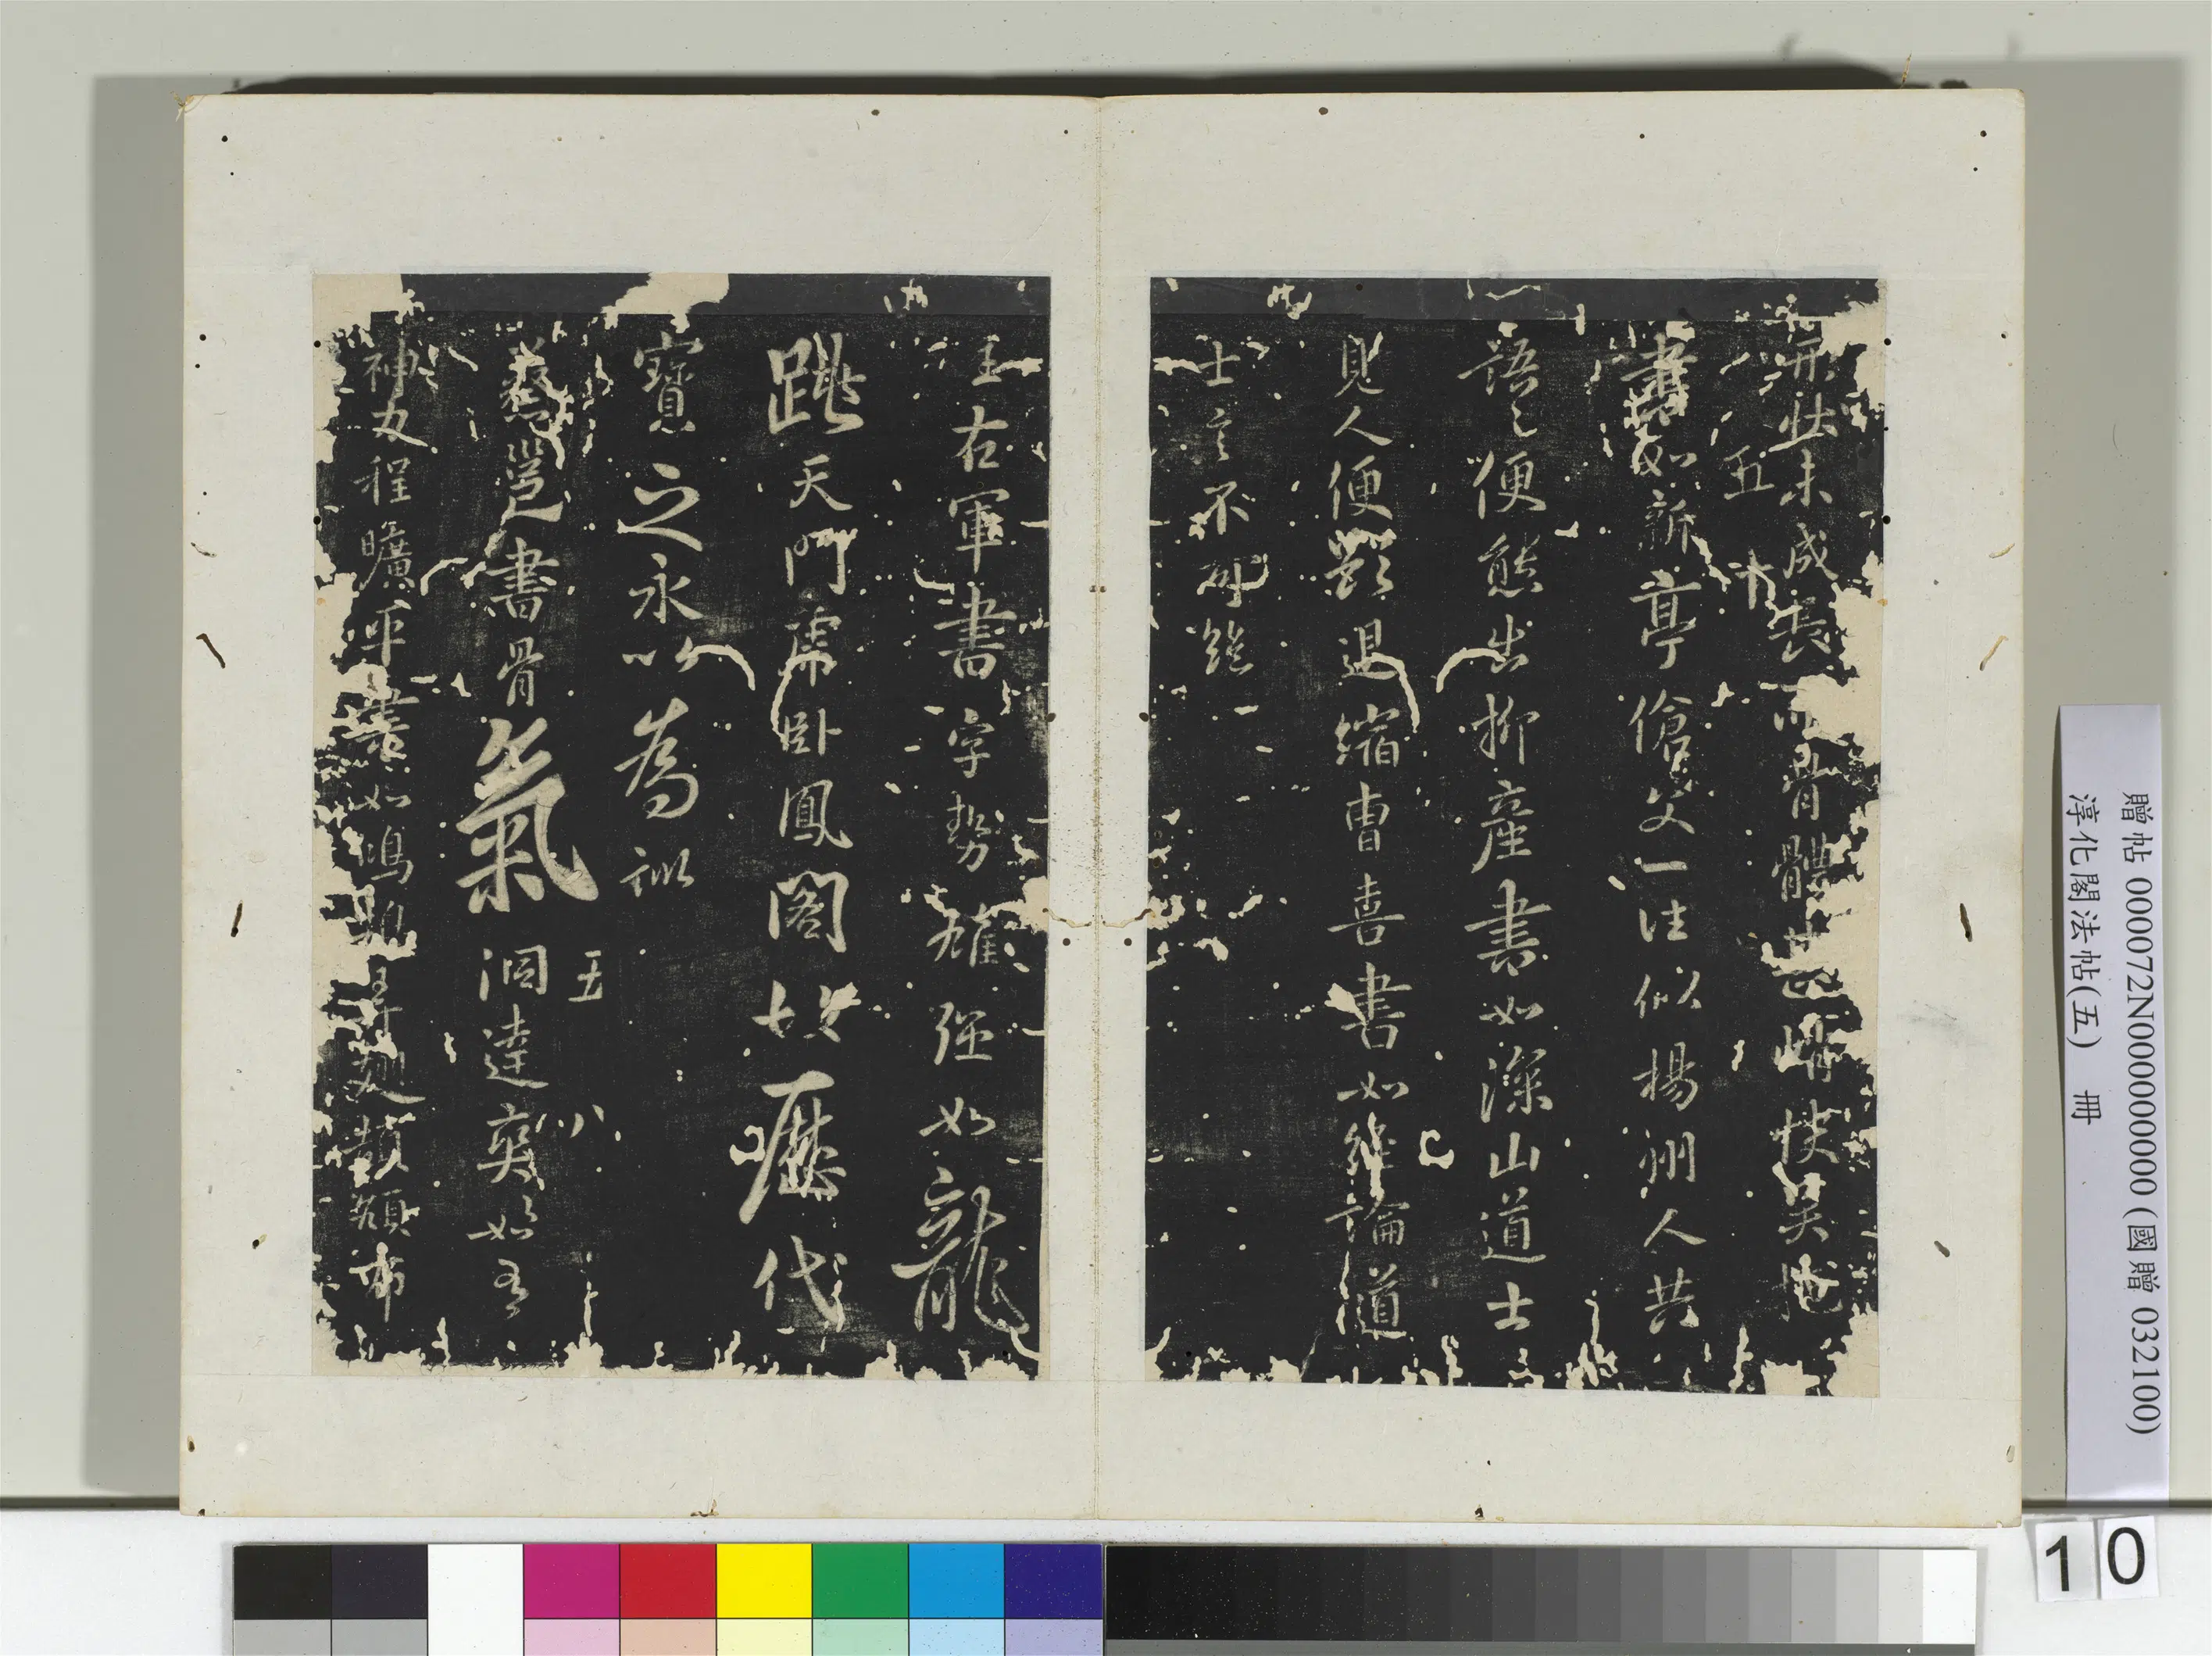 形狀未成長而骨體甚峭快吳施
五
十
書如新亭傖父一往似揚州人共
語語便態出柳產書如深山道士
見人便欲退縮曹喜書如經論道
士言不可絕
王右軍書字勢雄強如龍
跳天門虎卧鳳閣故歷代
寶之永以為訓
五
八
蔡邕書骨氣洞達爽如有
神力程曠平書如鴻鵠弄翅頡頏布
贈帖 000072N000000000 (國贈 032100)
淳化閣法帖(五) 冊
10